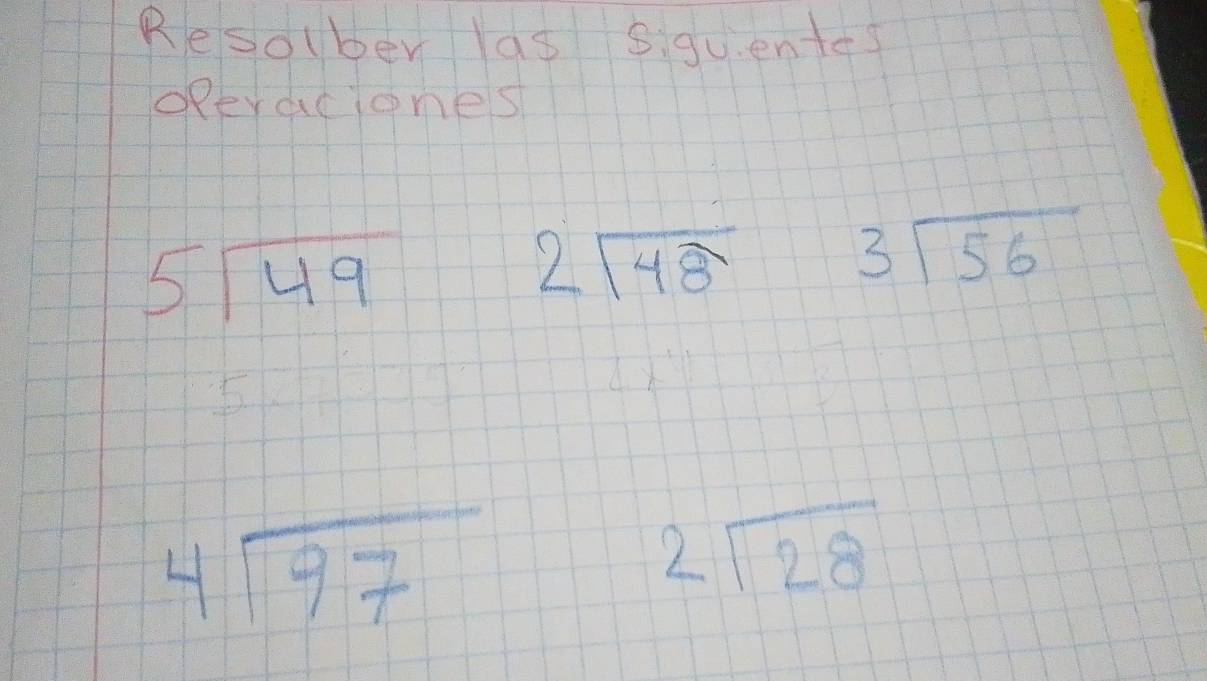 Resolber las siguientes
operaciones
5 49 2 48 3 56
4 97 2 28